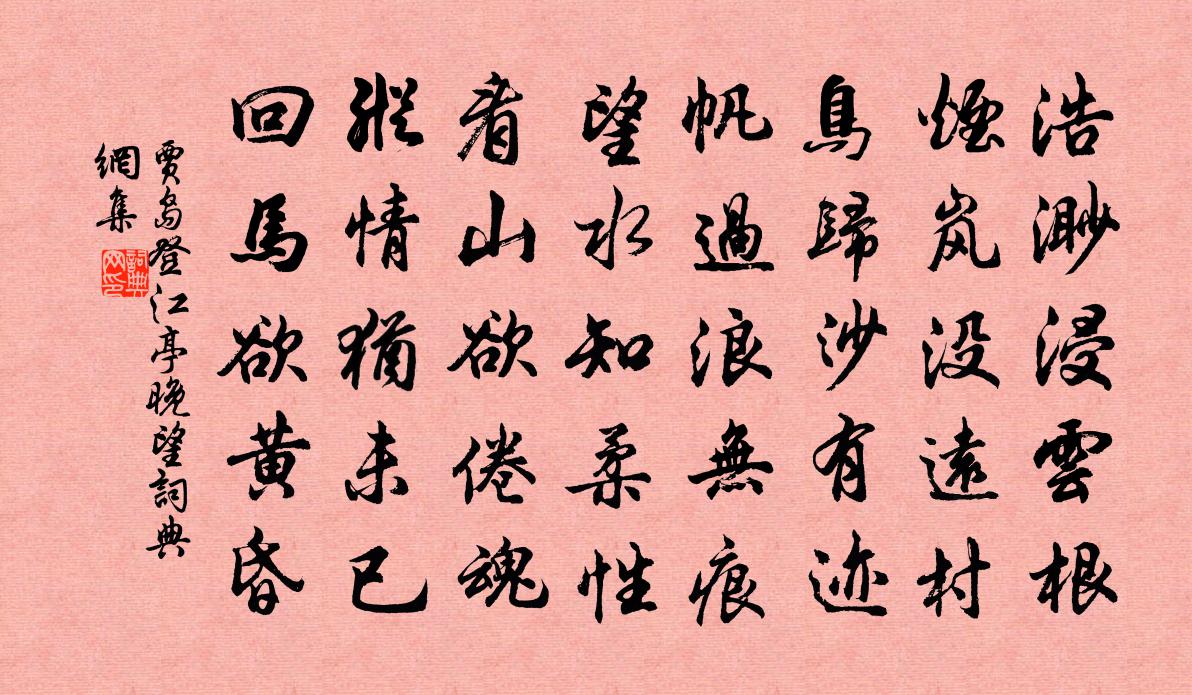 浩渺浸雲根
煙岚没遠村
鳥歸沙有迹
帆過浪無痕
望水知柔性
看山欲倦魂
縱情猶未已
回馬欲黄昏
賈島登江亭晚望詞典
網集
詞典网印